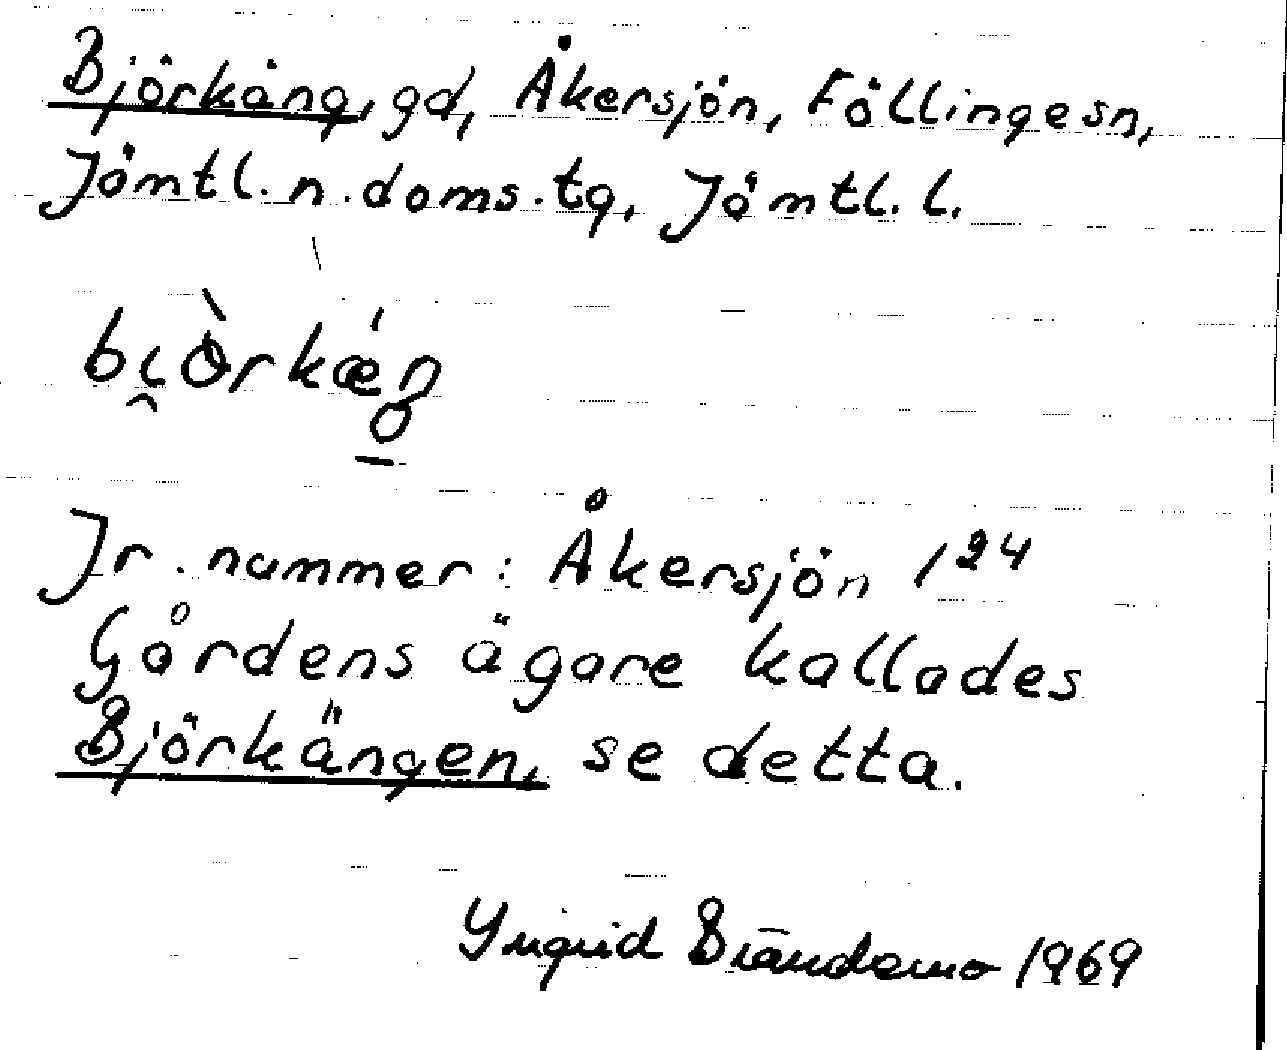 Björkäng, gd, Åkersjön, Föllingesn,
Jämtl. n. doms. tg, Jämtl. l.
Jr. nummer: Åkersjön 1²⁴
Gårdens ägare kallades
Björkängen, se detta.
Ingrid 1969